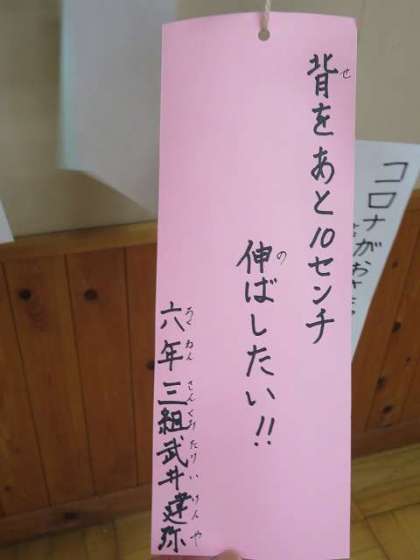 背をあと10センチ
せ
伸ばしたい!!
の
六年三組武井建弥
ろくねんさんくみたけいけんや
コロナがおさ